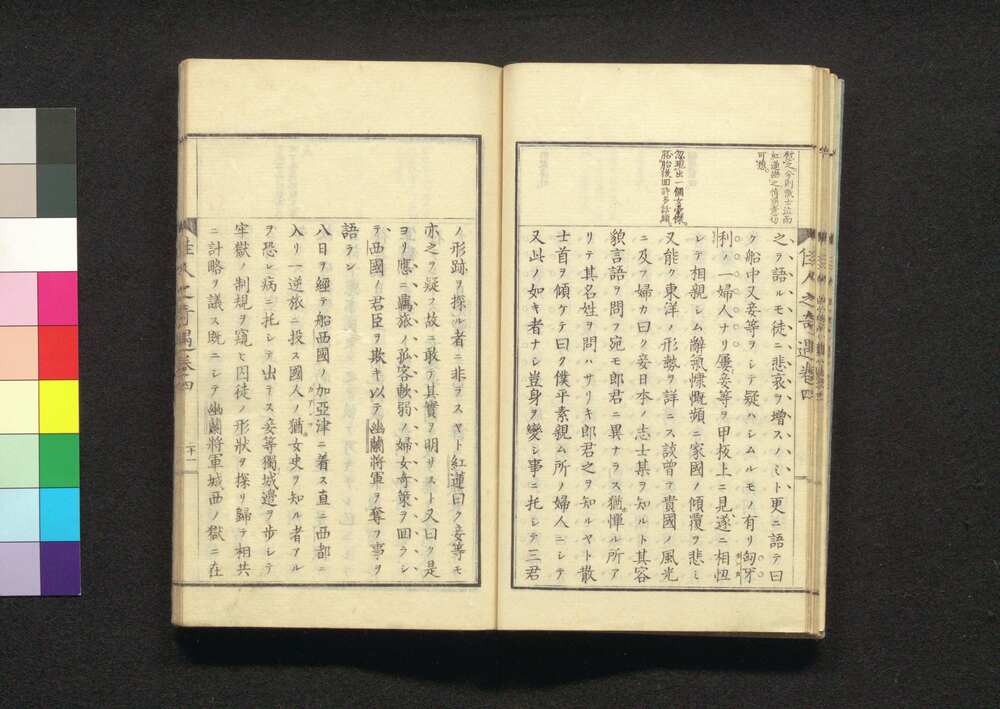 慰之今則散士泣而
紅蓮
可憐
忽現出一個
胎胎後回許多話頭
佳人之奇遇卷四
之ヲ語ルモ徒ニ悲哀ヲ增スノミト更ニ語テ曰
ク船中又妾等ヲシテ疑ハシムルモノ有リ匈牙
利ノ一婦人ナリ屢妾等ヲ甲板上ニ見遂ニ相狃
レテ相親シム辭氣慷慨頻ニ家國ノ傾覆ヲ悲ミ
又能ク東洋ノ形勢ヲ詳ニス談曾テ貴國ノ風光
ニ及フ婦カ曰ク妾日本ノ志士某ヲ知ルト其容
貌言語ヲ問フ宛モ郎君ニ異ナラス猶憚ル所ア
リテ其名姓ヲ問ハサリキ郎君之ヲ知ルヤト散
士首ヲ傾ケテ曰ク僕平素親ム所ノ婦人ニシテ
又此ノ如キ者ナシ豈身ヲ變シ事ニ托シテ三君
ノ形跡ヲ探ル者ニ非ラスヤト紅蓮曰ク妾等モ
亦之ヲ疑フ故ニ敢テ其實ヲ明サスト又曰ク是
ヨリ應ニ羈旅ノ孤客軟弱ノ婦女奇策ヲ回ラシ
テ西國ノ君臣ヲ欺キ以テ幽蘭將軍ヲ奪フ事ヲ
語ラン
八日ヲ經テ船西國ノ加亞津ニ着ス直ニ西都ニ
入リ一逆旅ニ投ス國人ノ猶女史ヲ知ル者アル
ヲ恐レ病ニ托シテ出テス妾等獨城邊ヲ歩シテ
牢獄ノ制規ヲ窺ヒ囚徒ノ形狀ヲ探リ歸テ相共
ニ計略ヲ議ス既ニシテ幽蘭將軍城西ノ獄ニ在
佳人之奇遇卷四
二十一